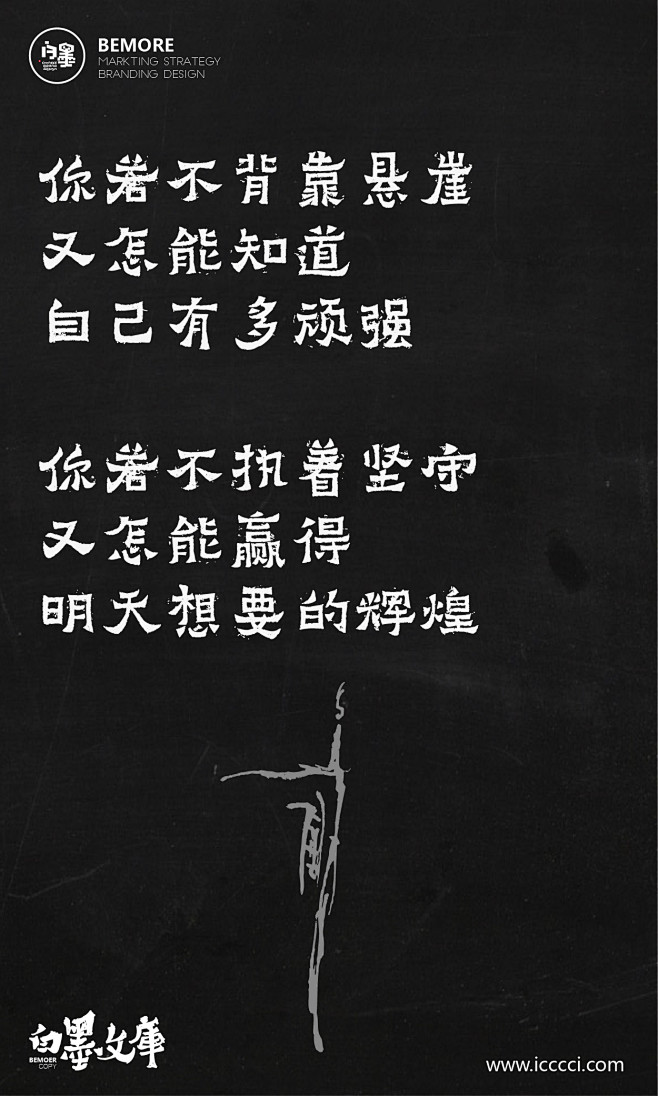 白墨
BEMORE
MARKTING STRATEGY
BRANDING DESIGN
你若不背靠悬崖
又怎能知道
自己有多顽强
你若不执着坚守
又怎能赢得
明天想要的辉煌
白墨文庫
BEMOER
COPY
www.icccci.com